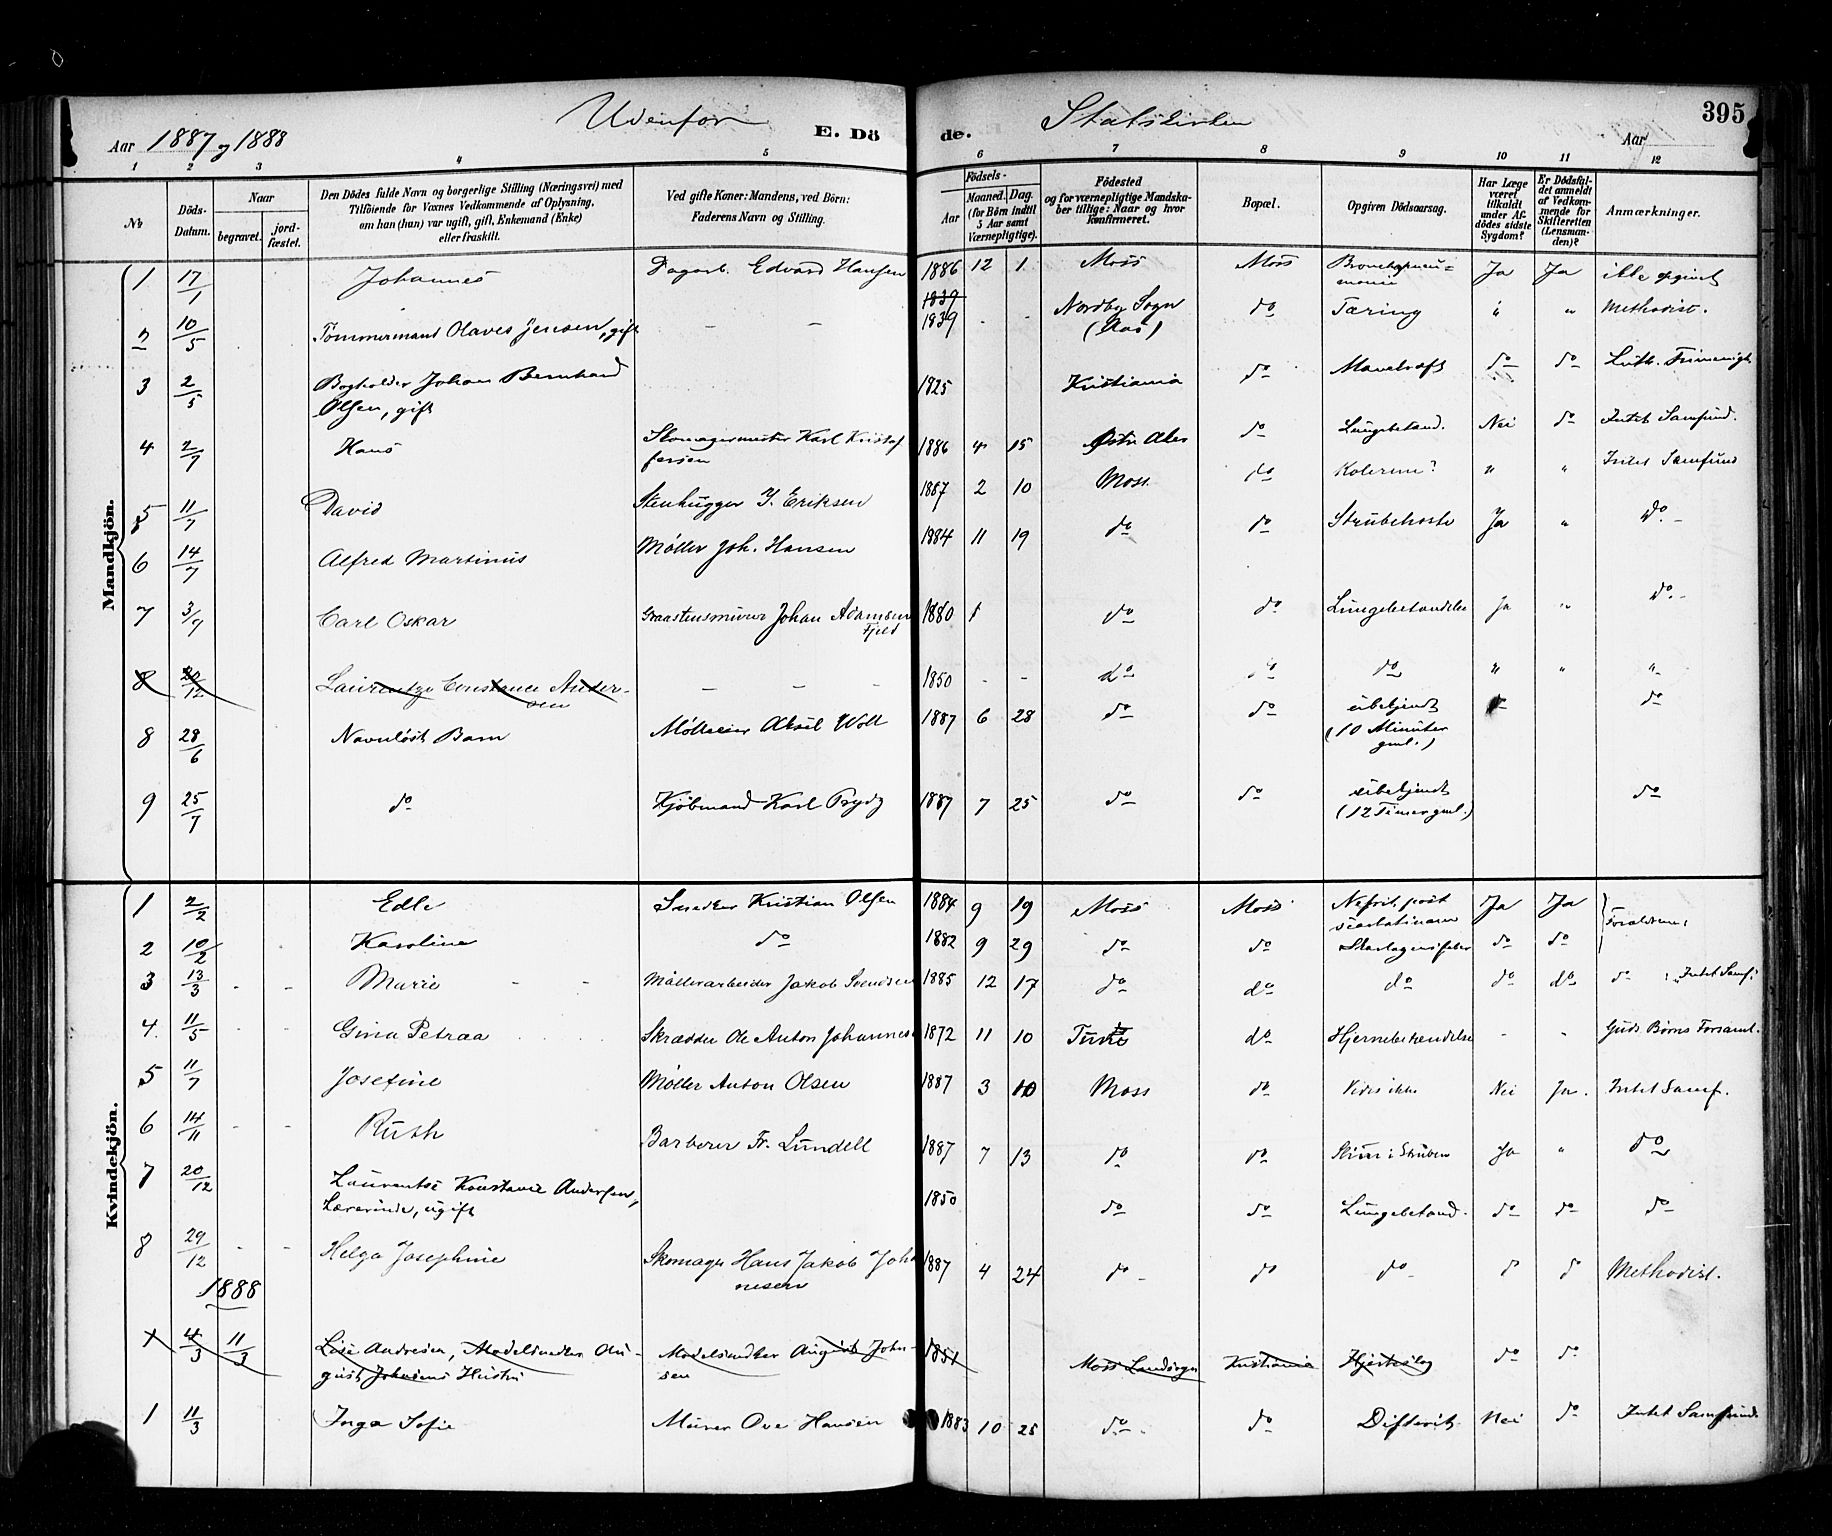 Udenfor Statskirken
395
Aar 1887 og 1888 E. Döde. Aar
1 2 3 4 5 6 7 8 9 10 11 12
No
Döds-Datum.
Naar
begravet.
jordfæstet.
Den Dödes fulde Navn og borgerlige Stilling (Næringsvei) med
Tilföiende for Voxnes Vedkommende af Oplysning,
om han (hun) var ugift, gift, Enkemand (Enke)
eller fraskilt.
Ved gifte Koner: Mandens, ved Börn:
Faderens Navn og Stilling.
Födsels-
Aar
Maaned. Dag.
(for Börn indtil
5 Aar samt
Værnepligtige).
Födested
og for værnepligtige Mandska-
ber tillige: Naar og hvor
konfirmeret.
Bopæl.
Opgiven Dödsaarsag.
Har Læge
været
tilkaldt
under Af-
dödes sidste
Sygdom?
Er Dödsfal-
det anmeldt
af Vedkom-
mende for
Skifteretten
(Lensman-
den)?
Anmærkninger.
Mandkjön.
1 17/1 Johannes Dagarb. Edvard Hansen 1886 12 1 Moss Moss Bronchopneu=
monie Ja Ja ikke opgivet
1839
2 10/5 Tömmermand Olaves Jensen, gift - - 1839 - - Nordby Sogn
(Aas) do Tæring " " Methodist.
3 2/5 Bogholder Johan Bernhard
Olsen, gift 1825 Kristiania do Mavekræft do do Luth. Frimenigh.
4 2/7 Hans Skomagermester Karl Kristof
fersen 1886 4 15 Østre Aker do Lungebetænd. Nei do Intet Samfund.
5 11/7 David Stenhugger J. Eriksen 1887 2 10 Moss do Kolerine? " " Intet Samfund
6 14/7 Alfred Martinus Møller Joh. Hansen 1884 11 19 do do Strubehoste Ja " do. -
7 3/9 Carl Oskar Graastensmurer Johan Adamsen
Fjeld 1880 1 do do Lungebetændelse Ja " do. -
8 20/12 Laurentze Constance Ander-
sen - - - 1850 - - do do do " " "
8 28/6 Navnløst Barn Mølleeier Aksel Woll 1887 6 28 do do ubekjendt
(10 Minuter
gml.) do
9 25/7 do Kjøbmand Karl Prydz 1887 7 25 do do ubekjendt
(12 Timer gml.) do
Kvindekjön.
1 2/2 Edle Snedker Kristian Olsen 1884 9 19 Moss Moss Nefrit. post
scarlatinam Ja Ja Forældrene:
2 10/2 Karoline do 1882 9 29 do do Skarlagensfeber do do
3 13/3 - - Marie - - Møllerarbeider Jakob Svendsen 1885 12 17 do do do do do do : "Intet Samf."
4. 11/5 - - Gina Petraa Skrædder Ole Anton Johannes 1872 11 10 do Hjernebetændelse - - Guds Børns Forsaml.
5 11/7 Josefine Møller Anton Olsen 1887 3 10 Moss do Vides ikke Nei Ja. Intet Samf.
6 14/11 - - Ruth Barberer Fr. Lundell 1887 7 13 do do Sliim i Struben Ja " do
7 20/12 Laurentse Konstance Andersen,
Lærerinde, ugift 1850 do do Lungebetænd. do do do
8 29/12 - - Helga Josephine Skomager Hans Jakob Joha
nesen 1887 4 24 do - do do - d d Methodist.
1888
1 4/3 11/3 Lise Andresen, Modelsnedker Au-
gust Johnsens Hustru Modelsnedker August John-
sen 1851 Moss Landsogn Kristiania Hjerteslag do do
1 11/3 Inga Sofie Murer Ove Hansen 1883 10 25 do - do Difterit. Nei do Intet Samfund.